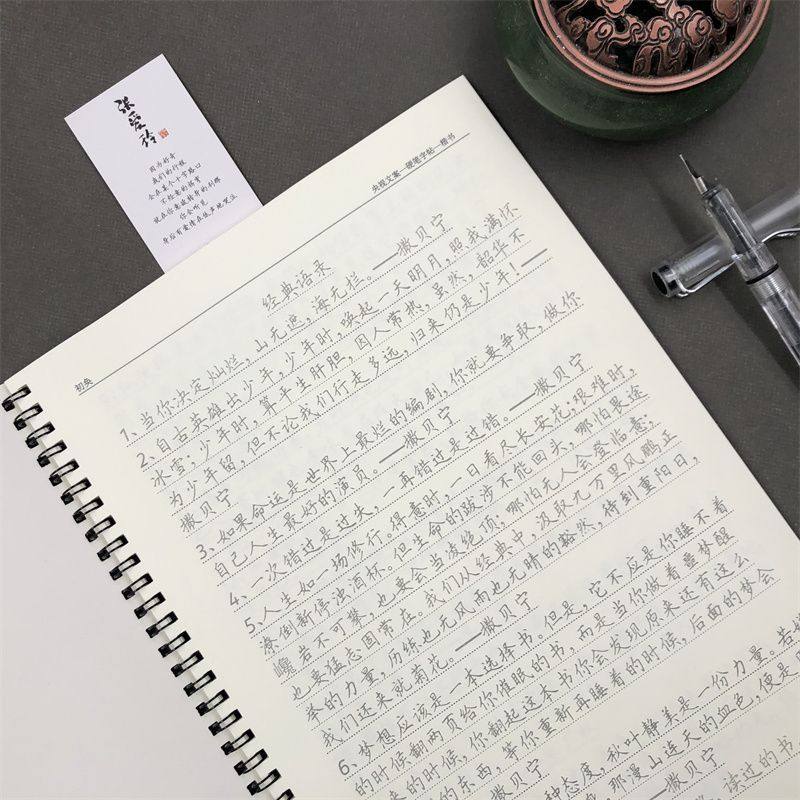 张爱玲
因为好奇
我们的行程
会在某个十字路口
不经意的拐弯
就在你意欲转身的刹那
你会听见
身后有爱情在低声地哭泣
央视文案—硬笔字帖—楷书
初奂
经典语录
1、当你决定灿烂，山无遮，海无拦。——撒贝宁
2、自古英雄出少年，少年时，唤起一天明月，照我满怀
冰雪；少年时，算平生肝胆，因人常热，虽然，韶华不
为少年留，但不论我们行走多远，归来仍是少年！——
撒贝宁
3、如果命运是世界上最烂的编剧，你就要争取，做你
自己人生最好的演员。——撒贝宁
4、一次错过是过失，一再错过是过错。——撒贝宁
5、人生如一场修行。得意时，一日看尽长安花；艰难时，
潦倒新停浊酒杯。但生命的跋涉不能回头，哪怕畏途
巉岩不可攀，也要会当凌绝顶，哪怕无人会登临意；
也要猛志固常在。我们从经典中，汲取九万里风鹏正
举的力量，历练也无风雨也无晴的豁然，待到重阳日，
我们还来就菊花。——撒贝宁
6、梦想应该是一本选择书。但是，它不应是你睡不着
的时候翻两页给你催眠的书，而是当你做着噩梦醒
来的时候，你翻起这本书你会发现原来还有这么
的东西，等你重新再睡着的时候，后面的梦会
撒贝宁
种态度，秋叶静美是一份力量。若
那漫山连天的血色，便是
——撒贝宁
读过的书